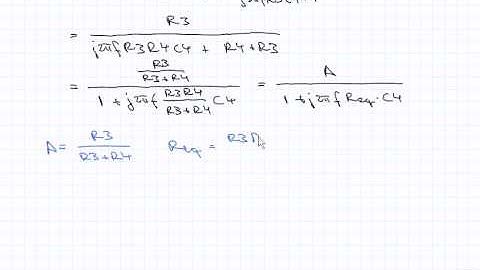 = R3 / (j2πf R3R4C4 + R4+R3)
= (R3 / (R3+R4)) / (1 + j2πf (R3R4 / (R3+R4)) C4) = A / (1 + j2πf Req · C4)
A = R3 / (R3+R4) Req = R3